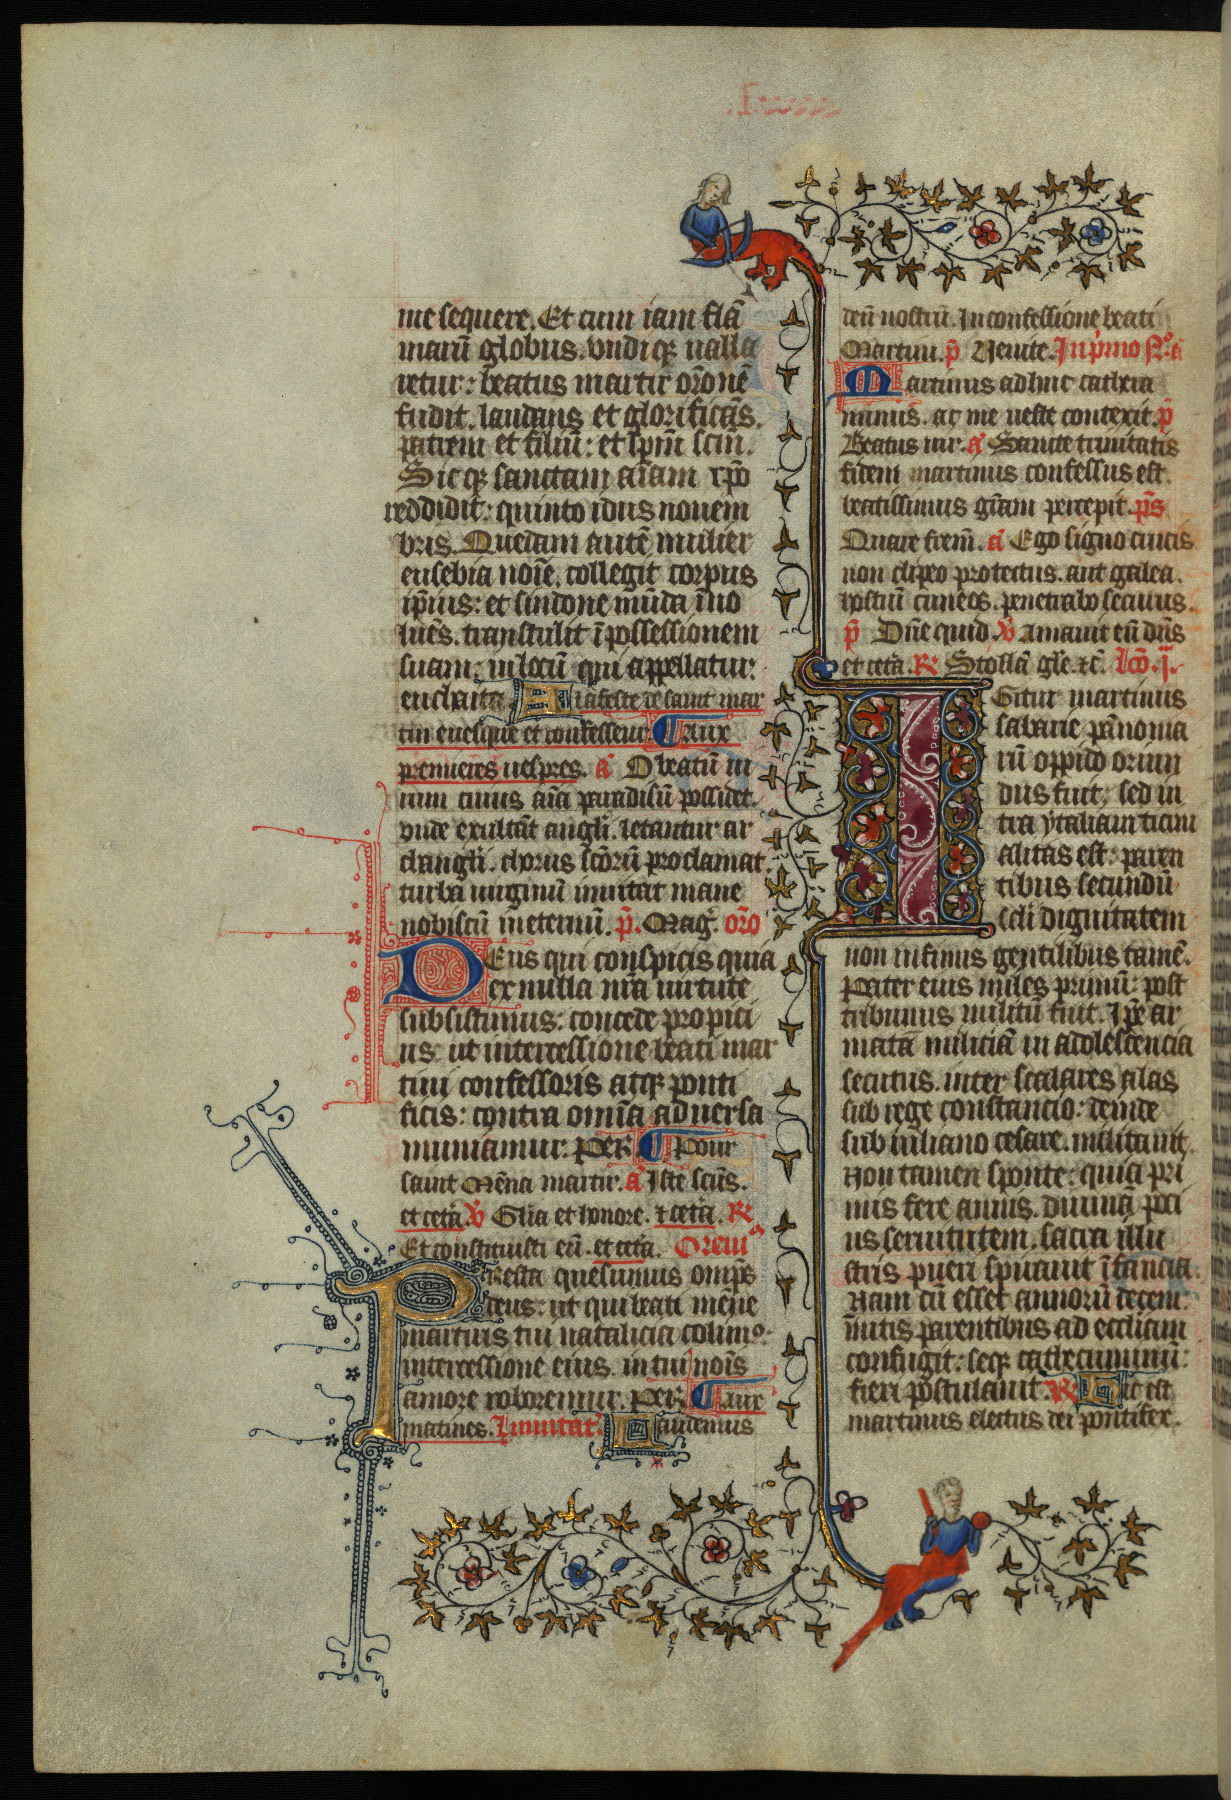 me sequere. Et cum iam flã
marũ globus. vndiq; ualla
retur: beatus martir orõnẽ
fudit. laudans et glorificãs.
patrem et filiũ: et sp̃m scm̃.
Sicq; sanctam aĩam xp̃o
reddidit: quinto idus nouem
bris. Quedam autẽ mulier
eusebia noĩe. collegit corpus
ip̃ius: et sindone mũda ĩuo
luẽs. transtulit ĩ possessionem
suam: in locũ qui appellatur:
euchaita. A la feste de saint mar
tin euesque et confesseur. Aux
premieres uespres. ã O beatũ ui
rum cuius aĩa paradisũ possidet.
vnde exultãt angl̃i. letantur ar
changl̃i. chorus scõrũ proclamat.
turba uirginũ inuitat mane
nobiscũ in eternũ. p̃. Mag̃. orõ
Deus qui conspicis quia
ex nulla nr̃a uirtute
subsistimus: concede propici
us: ut intercessione beati mar
tini confessoris atq; ponti
ficis: contra omĩa aduersa
muniamur. Per. Pour
saint mẽna martir. ã Iste scũs.
et cetã. v̊ Gl̃ia et honore. et cetã. R
Et constituisti eũ. et cetã. Oremus
Presta quesumus omp̃s
deus: ut qui beati mẽne
martiris tui natalicia colimꝰ.
intercessione eius. in tui noĩs
amore roboremur. Per. Aux
matines. Inuitat̃. Laudemus
deũ nostrũ. In confessione beati
Martini. p̃ Venite. In p̃mo N.º ã
Martinus adhuc cathecu
minus. ac me ueste contexit. p̃
Beatus uir. ã Sancte trinitatis
fidem martinus confessus est.
beatissimus gr̃am percepit. p̃s
Quare frem̃. ã Ego signo crucis
non clipeo protectus. aut galea.
hostiũ cuneos. penetrabo securus.
p̃ Dñe quid. v̊ Amauit eũ dñs
et cetã. R Stollã gl̃e. et c̃. lcõ. j.
Igitur martinus
sabarie pãnonia
rũ oppido oriun
dus fuit. sed in
tra ytaliam ticini
alitus est: paren
tibus secundũ
scl̃i dignitatem
non infimis gentilibus tamẽ.
Pater eius miles primũ: post
tribunus militũ fuit. Ip̃e ar
matã miliciã in adolescencia
secutus. inter scolares alas
sub rege constancio: deinde
sub iuliano cesare. militauit.
Non tamen sponte: quia pri
mis fere annis. diuinã poci
us seruitutem. sacra illu
stris pueri spirauit ĩfancia.
Nam cũ esset annorũ decem:
ĩuitis parentibus ad eccl̃iam
confugit: seq; cathecuminũ:
fieri postulauit. R Hic est
martinus electus dei pontifex.